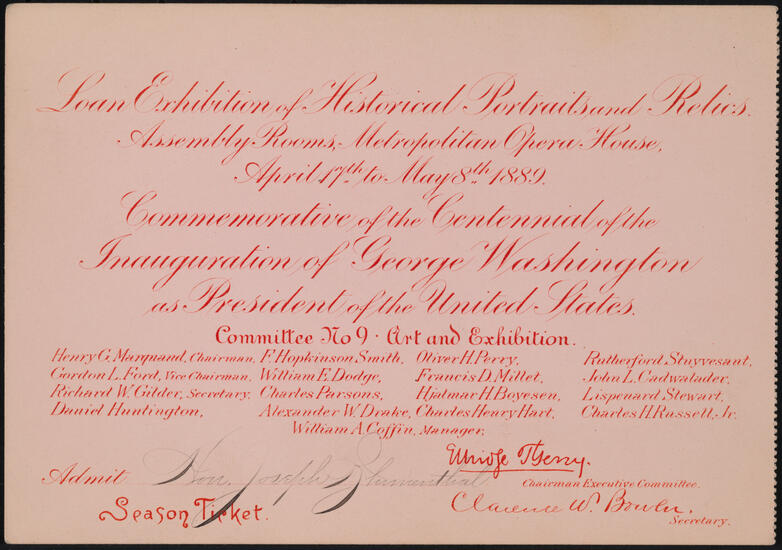 Loan Exhibition of Historical Portraits and Relics.
Assembly Rooms, Metropolitan Opera House,
April 17th to May 8th 1889.
Commemorative of the Centennial of the
Inauguration of George Washington
as President of the United States.
Committee No 9 · Art and Exhibition.
Henry G. Marquand, Chairman, F. Hopkinson Smith, Oliver H. Perry, Rutherford Stuyvesant,
Gordon L. Ford, Vice Chairman, William E. Dodge, Francis D. Millet, John L. Cadwalader,
Richard W. Gilder, Secretary, Charles Parsons, Hjalmar H. Boyesen, Lispenard Stewart,
Daniel Huntington, Alexander W. Drake, Charles Henry Hart, Charles H. Russell, Jr.
William A. Coffin, Manager,
Admit Hon. Joseph Blumenthal
Elbridge T. Gerry.
Chairman Executive Committee.
Season Ticket.
Clarence W. Bowen.
Secretary.